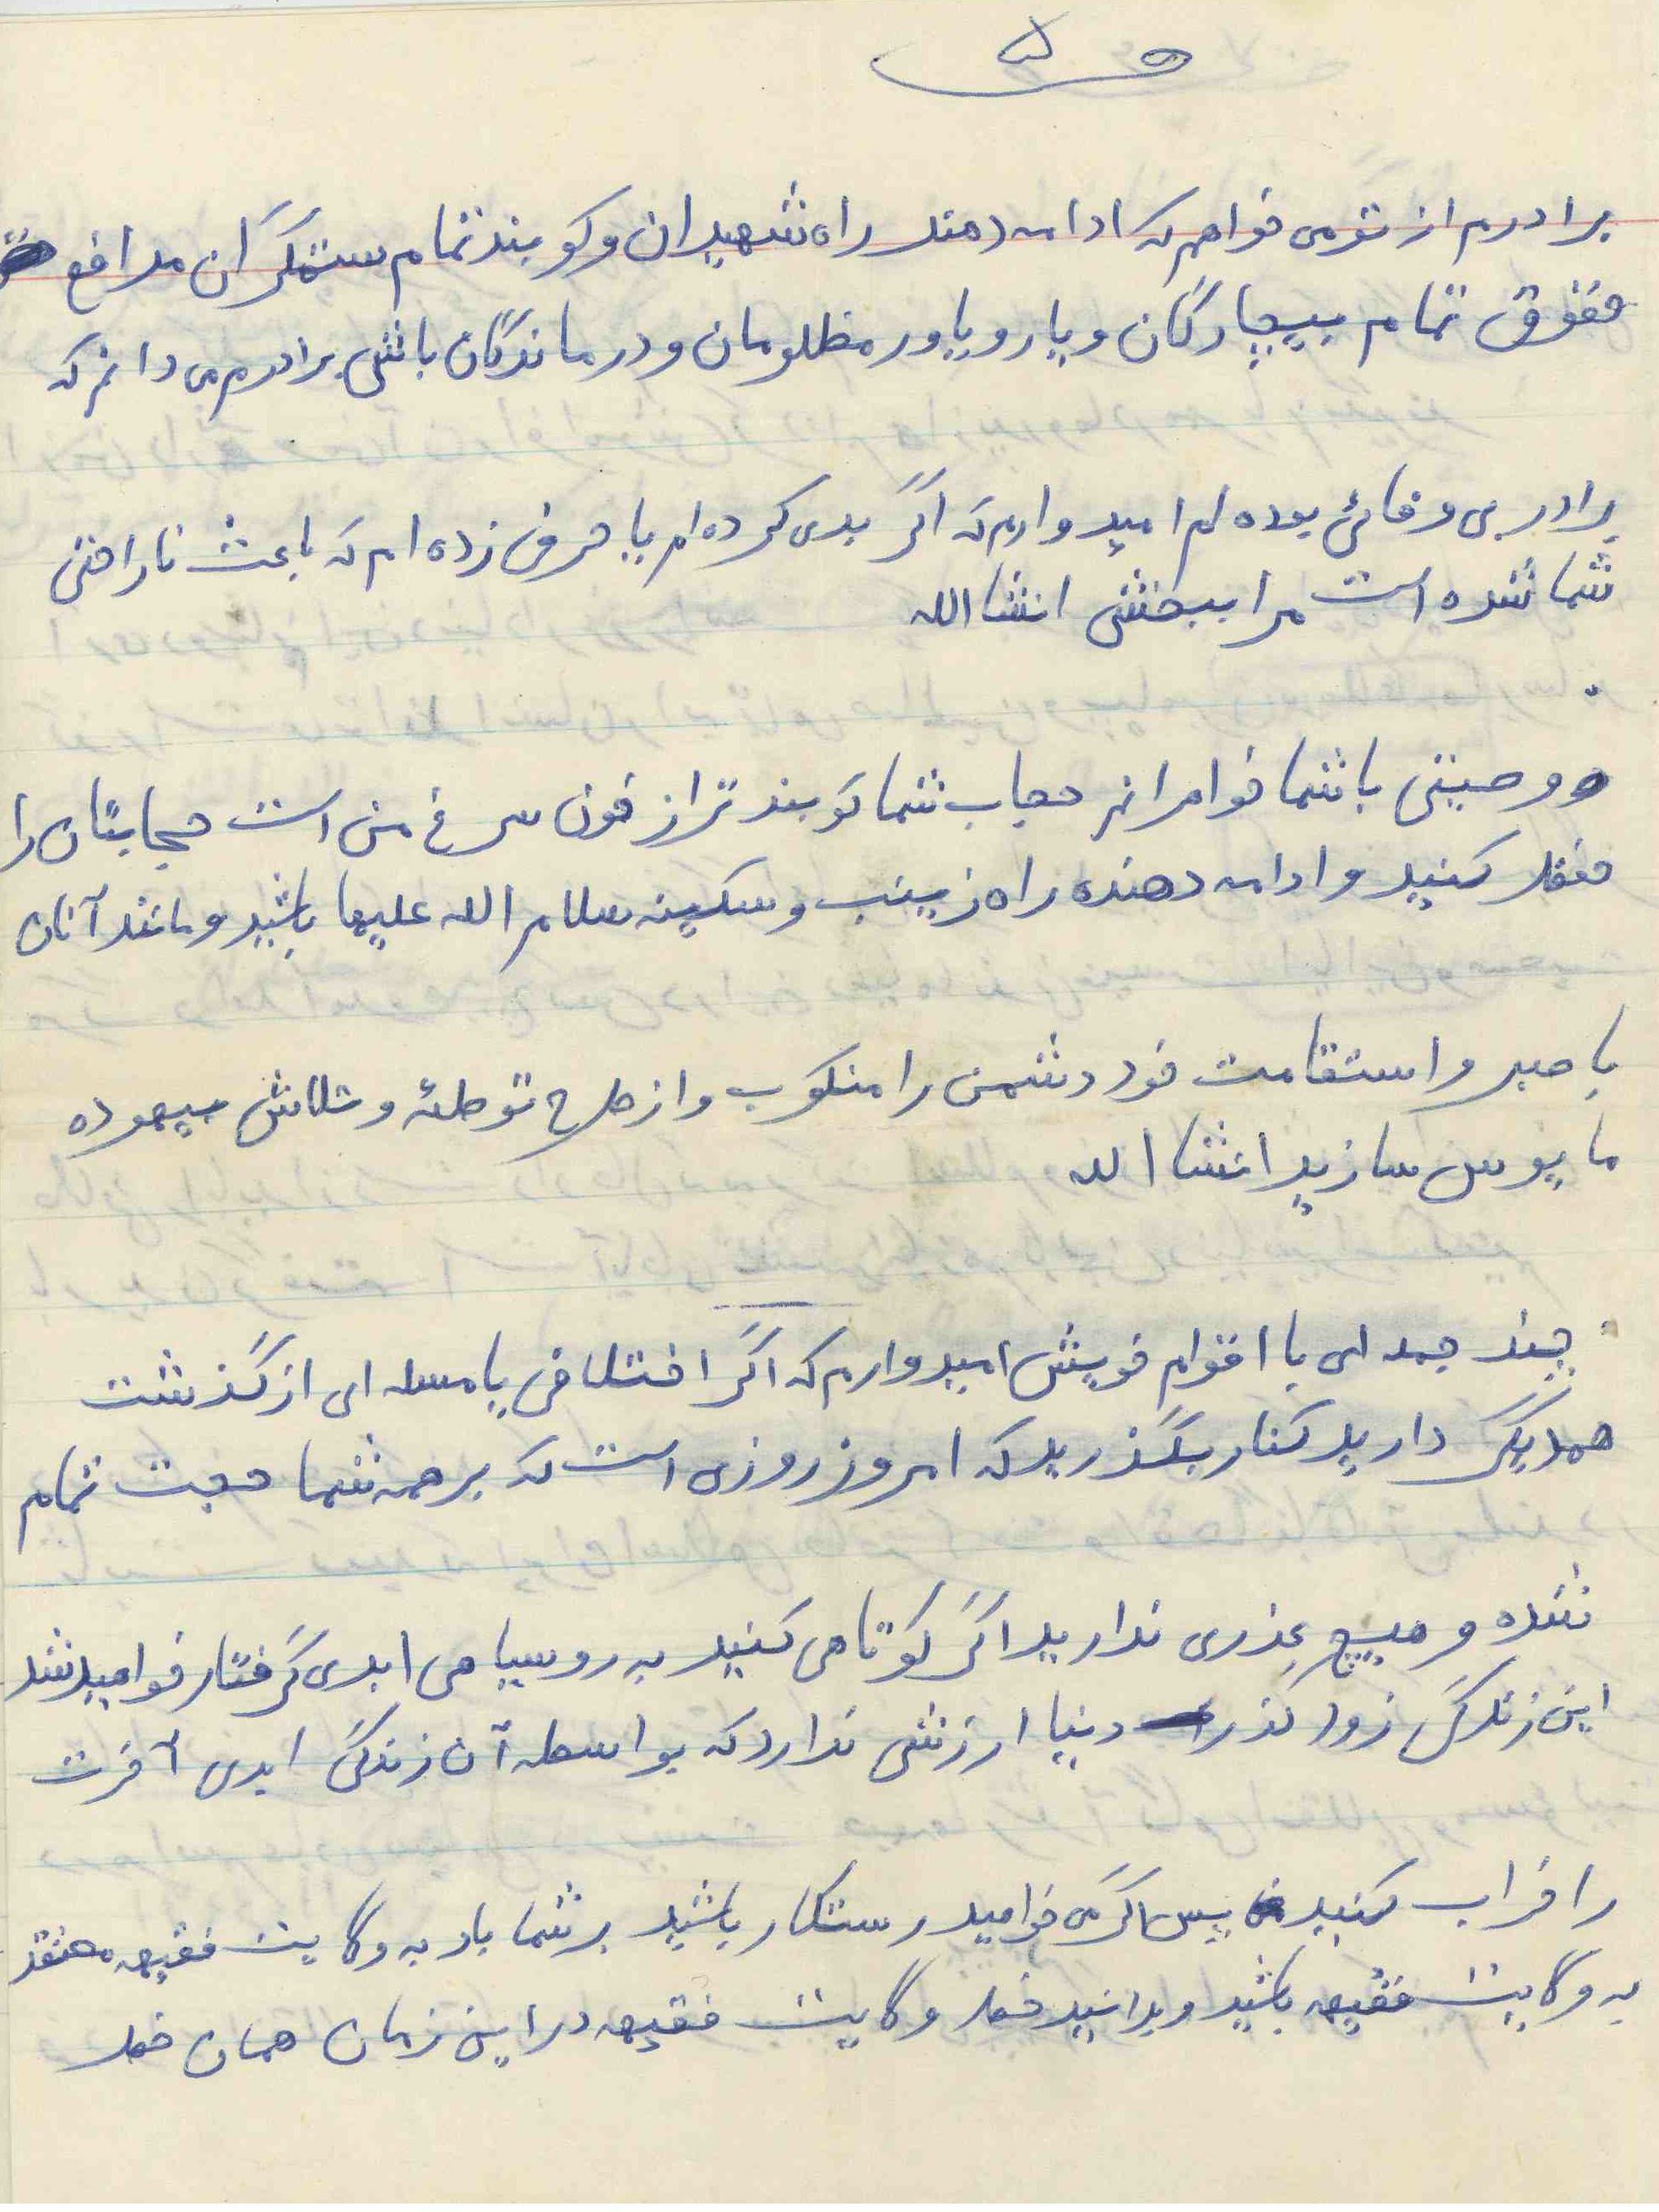 ص ۵
برادرم از تو می خواهم که ادامه دهنده راه شهیدان و کوبنده تمام ستمگران مدافع
حقوق تمام بیچارگان و یار و یاور مظلومان و درماندگان باشی برادرم می دانم که
برادر بی وفائی بوده ام امیدوارم که اگر بدی کرده ام یا حرفی زده ام که باعث ناراحتی
شما شده است مرا ببخشی انشاالله
و وصیتی با شما خواهرانم حجاب شما کوبنده تر از خون سرخ من است حجابتان را
حفظ کنید و ادامه دهنده راه زینب و سکینه سلام الله علیها باشید و مانند آنان
با صبر و استقامت خود دشمن را منکوب و از طرح توطئه و تلاش بیهوده
مایوس سازید انشاالله
چند جمله ای با اقوام خویش امیدوارم که اگر اختلافی یا مسله ای از گذشت
همدیگر دارید کنار بگذرید که امروز روزی است که بر همه شما حجت تمام
شده و هیچ عذری ندارید اگر کوتاهی کنید به روسیاهی ابدی گرفتار خواهید شد
این زندگی زود گذر دنیا ارزشی ندارد که بواسطه آن زندگی ابدی آخرت
را خراب کنید پس اگر می خواهید رستگار باشید بر شما باد به ولایت فقیهه معتقد
به ولایت فقیهه باشید و بدانید خط ولایت فقیهه در این زمان همان خط